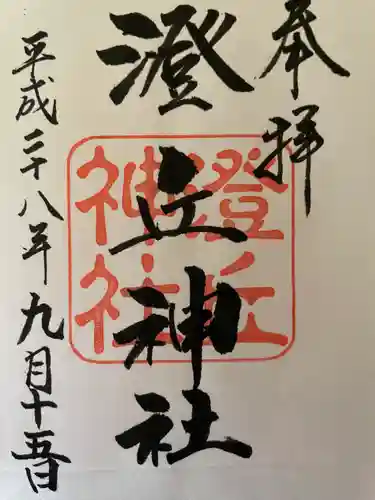 奉拝
澄丘神社
澄丘神社
平成二十八年九月十五日